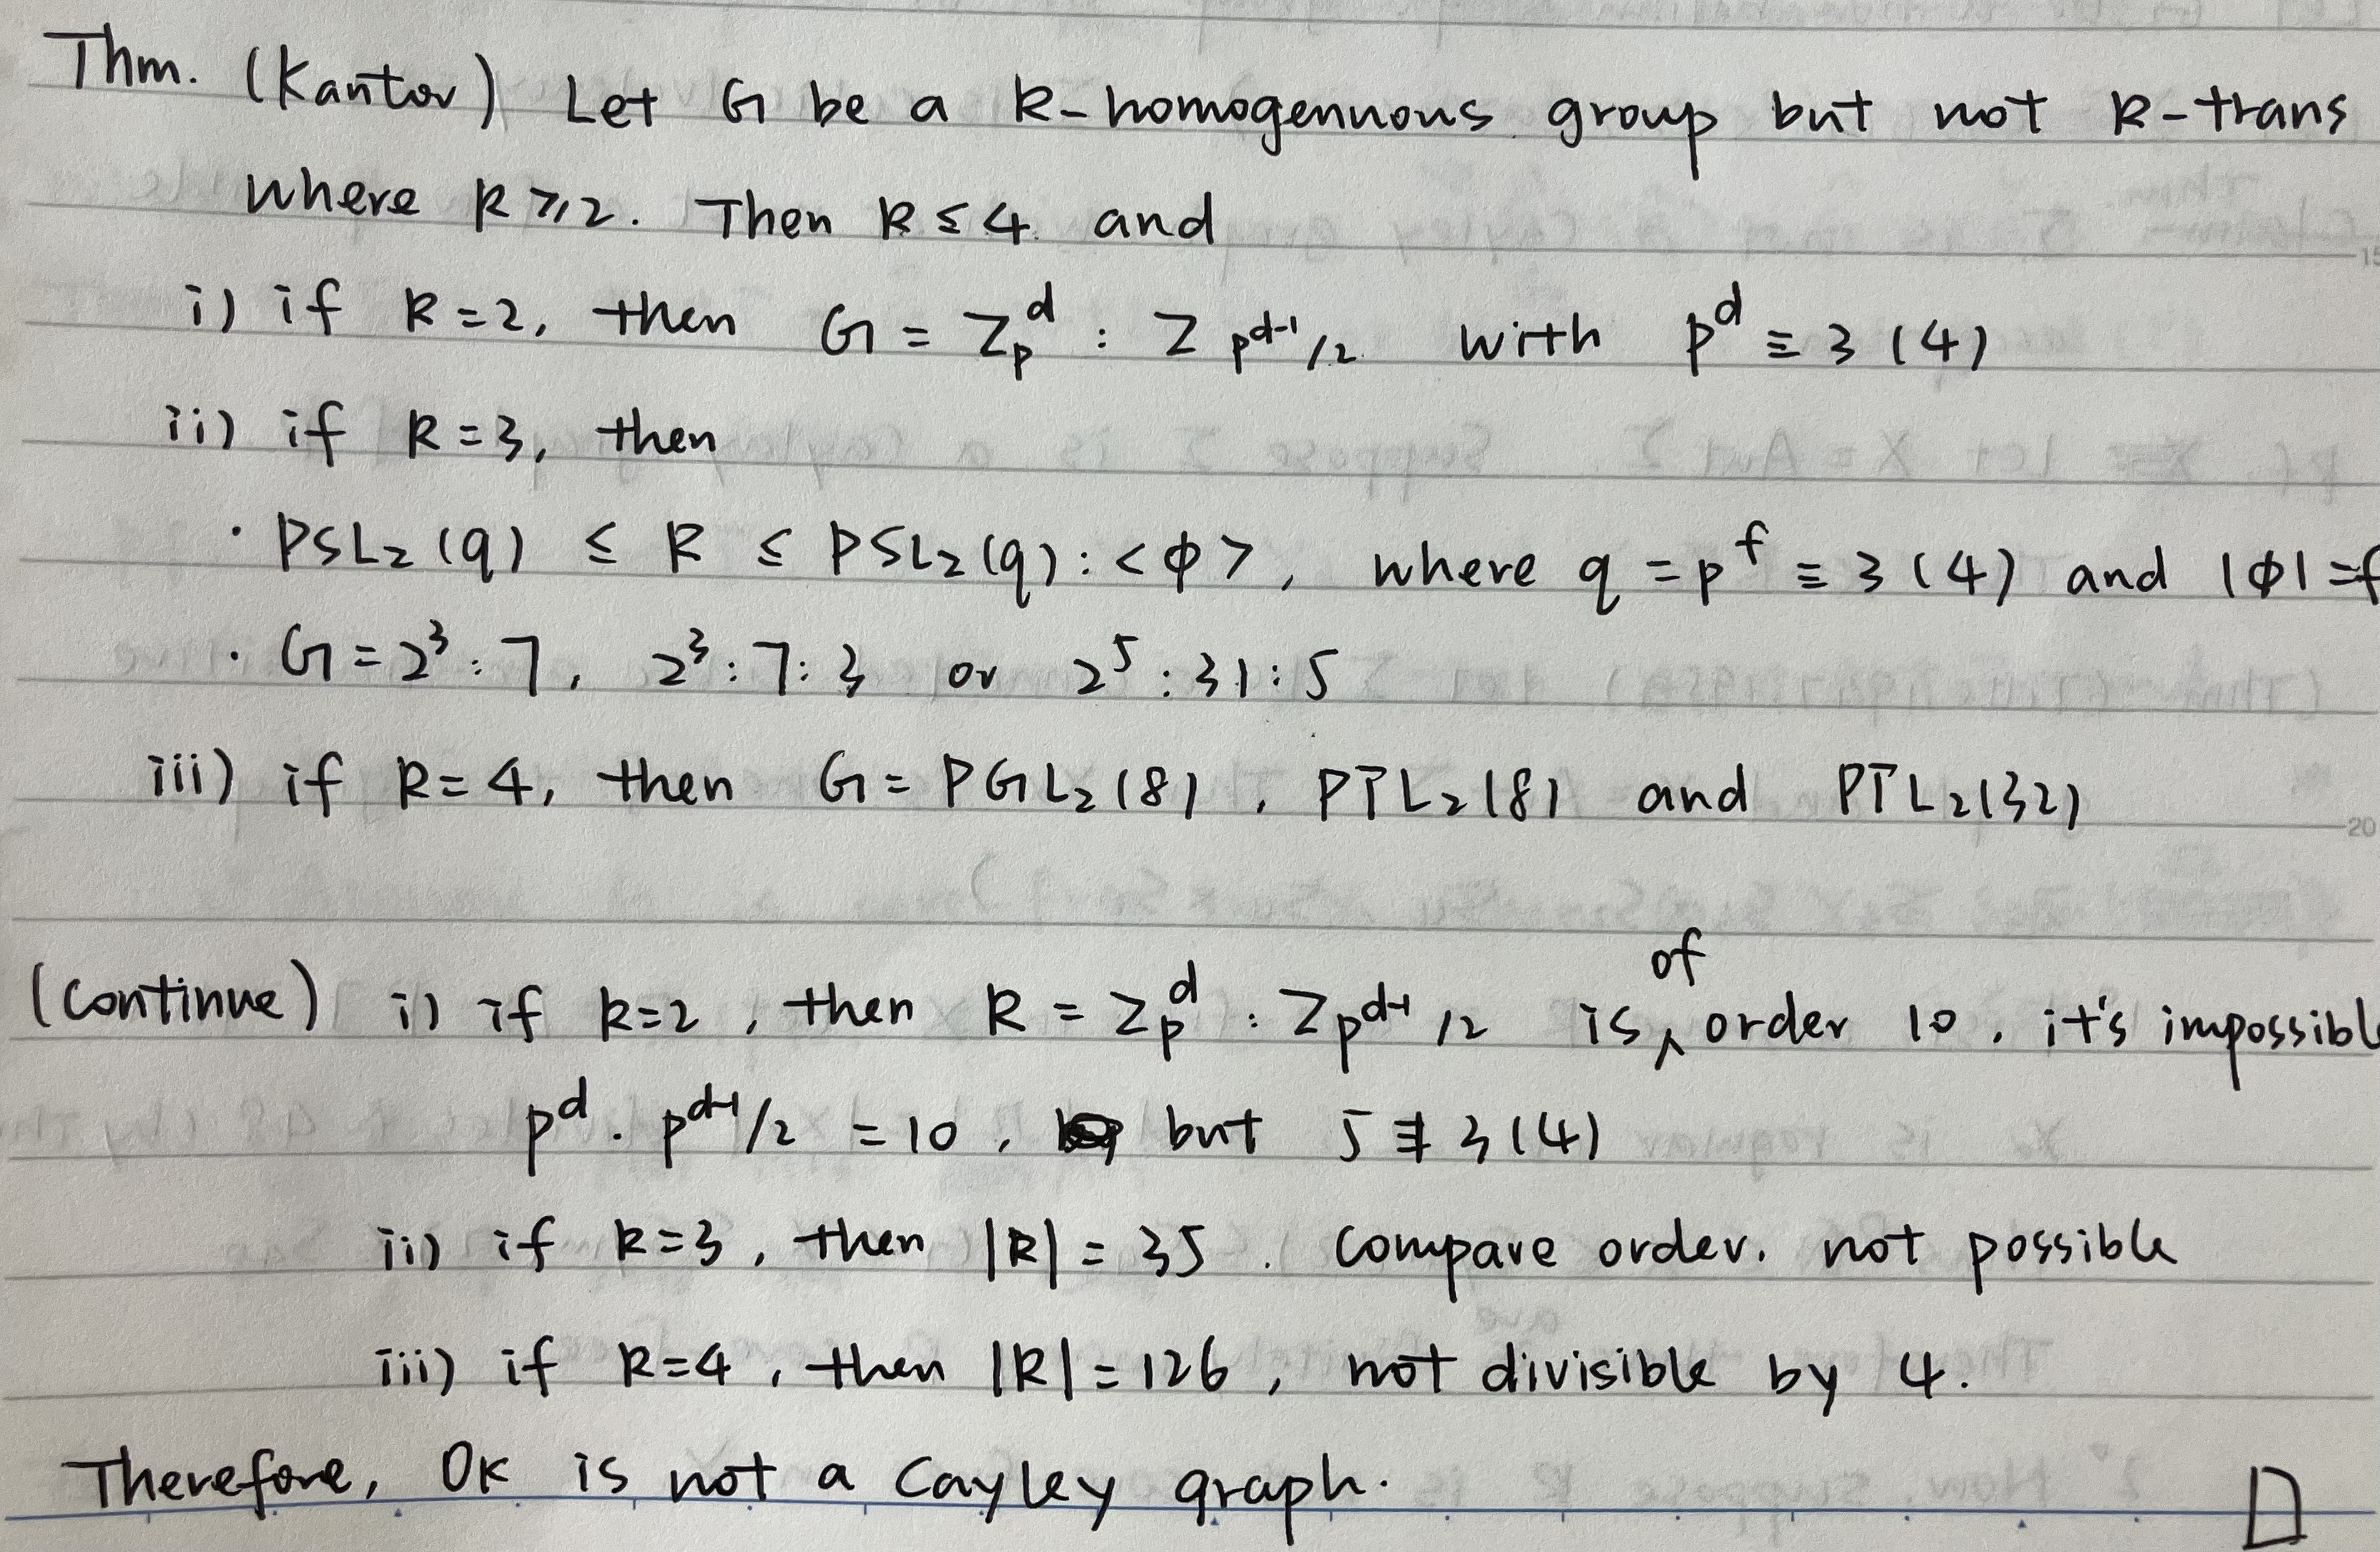 Thm. (Kantor) Let G be a k-homogennous group but not k-trans
where k ≥ 2. Then k ≤ 4 and
i) if k=2, then G = Z_p^d : Z_{p^d-1/2} with p^d ≡ 3 (4)
ii) if k=3, then
· PSL_2(q) ≤ R ≤ PSL_2(q):<φ>, where q = p^f ≡ 3 (4) and |φ|=f
· G = 2^3:7, 2^3:7:3 or 2^5:31:5
iii) if k=4, then G = PGL_2(8), PΓL_2(8) and PΓL_2(32)
(continue) i) if k=2, then R = Z_p^d : Z_{p^d-1/2} is of order 10, it's impossible
p^d · p^d-1/2 = 10, but 5 ≢ 3 (4)
ii) if k=3, then |R| = 35. Compare order. not possible
iii) if k=4, then |R| = 126, not divisible by 4.
Therefore, Ok is not a Cayley graph. □
15
20